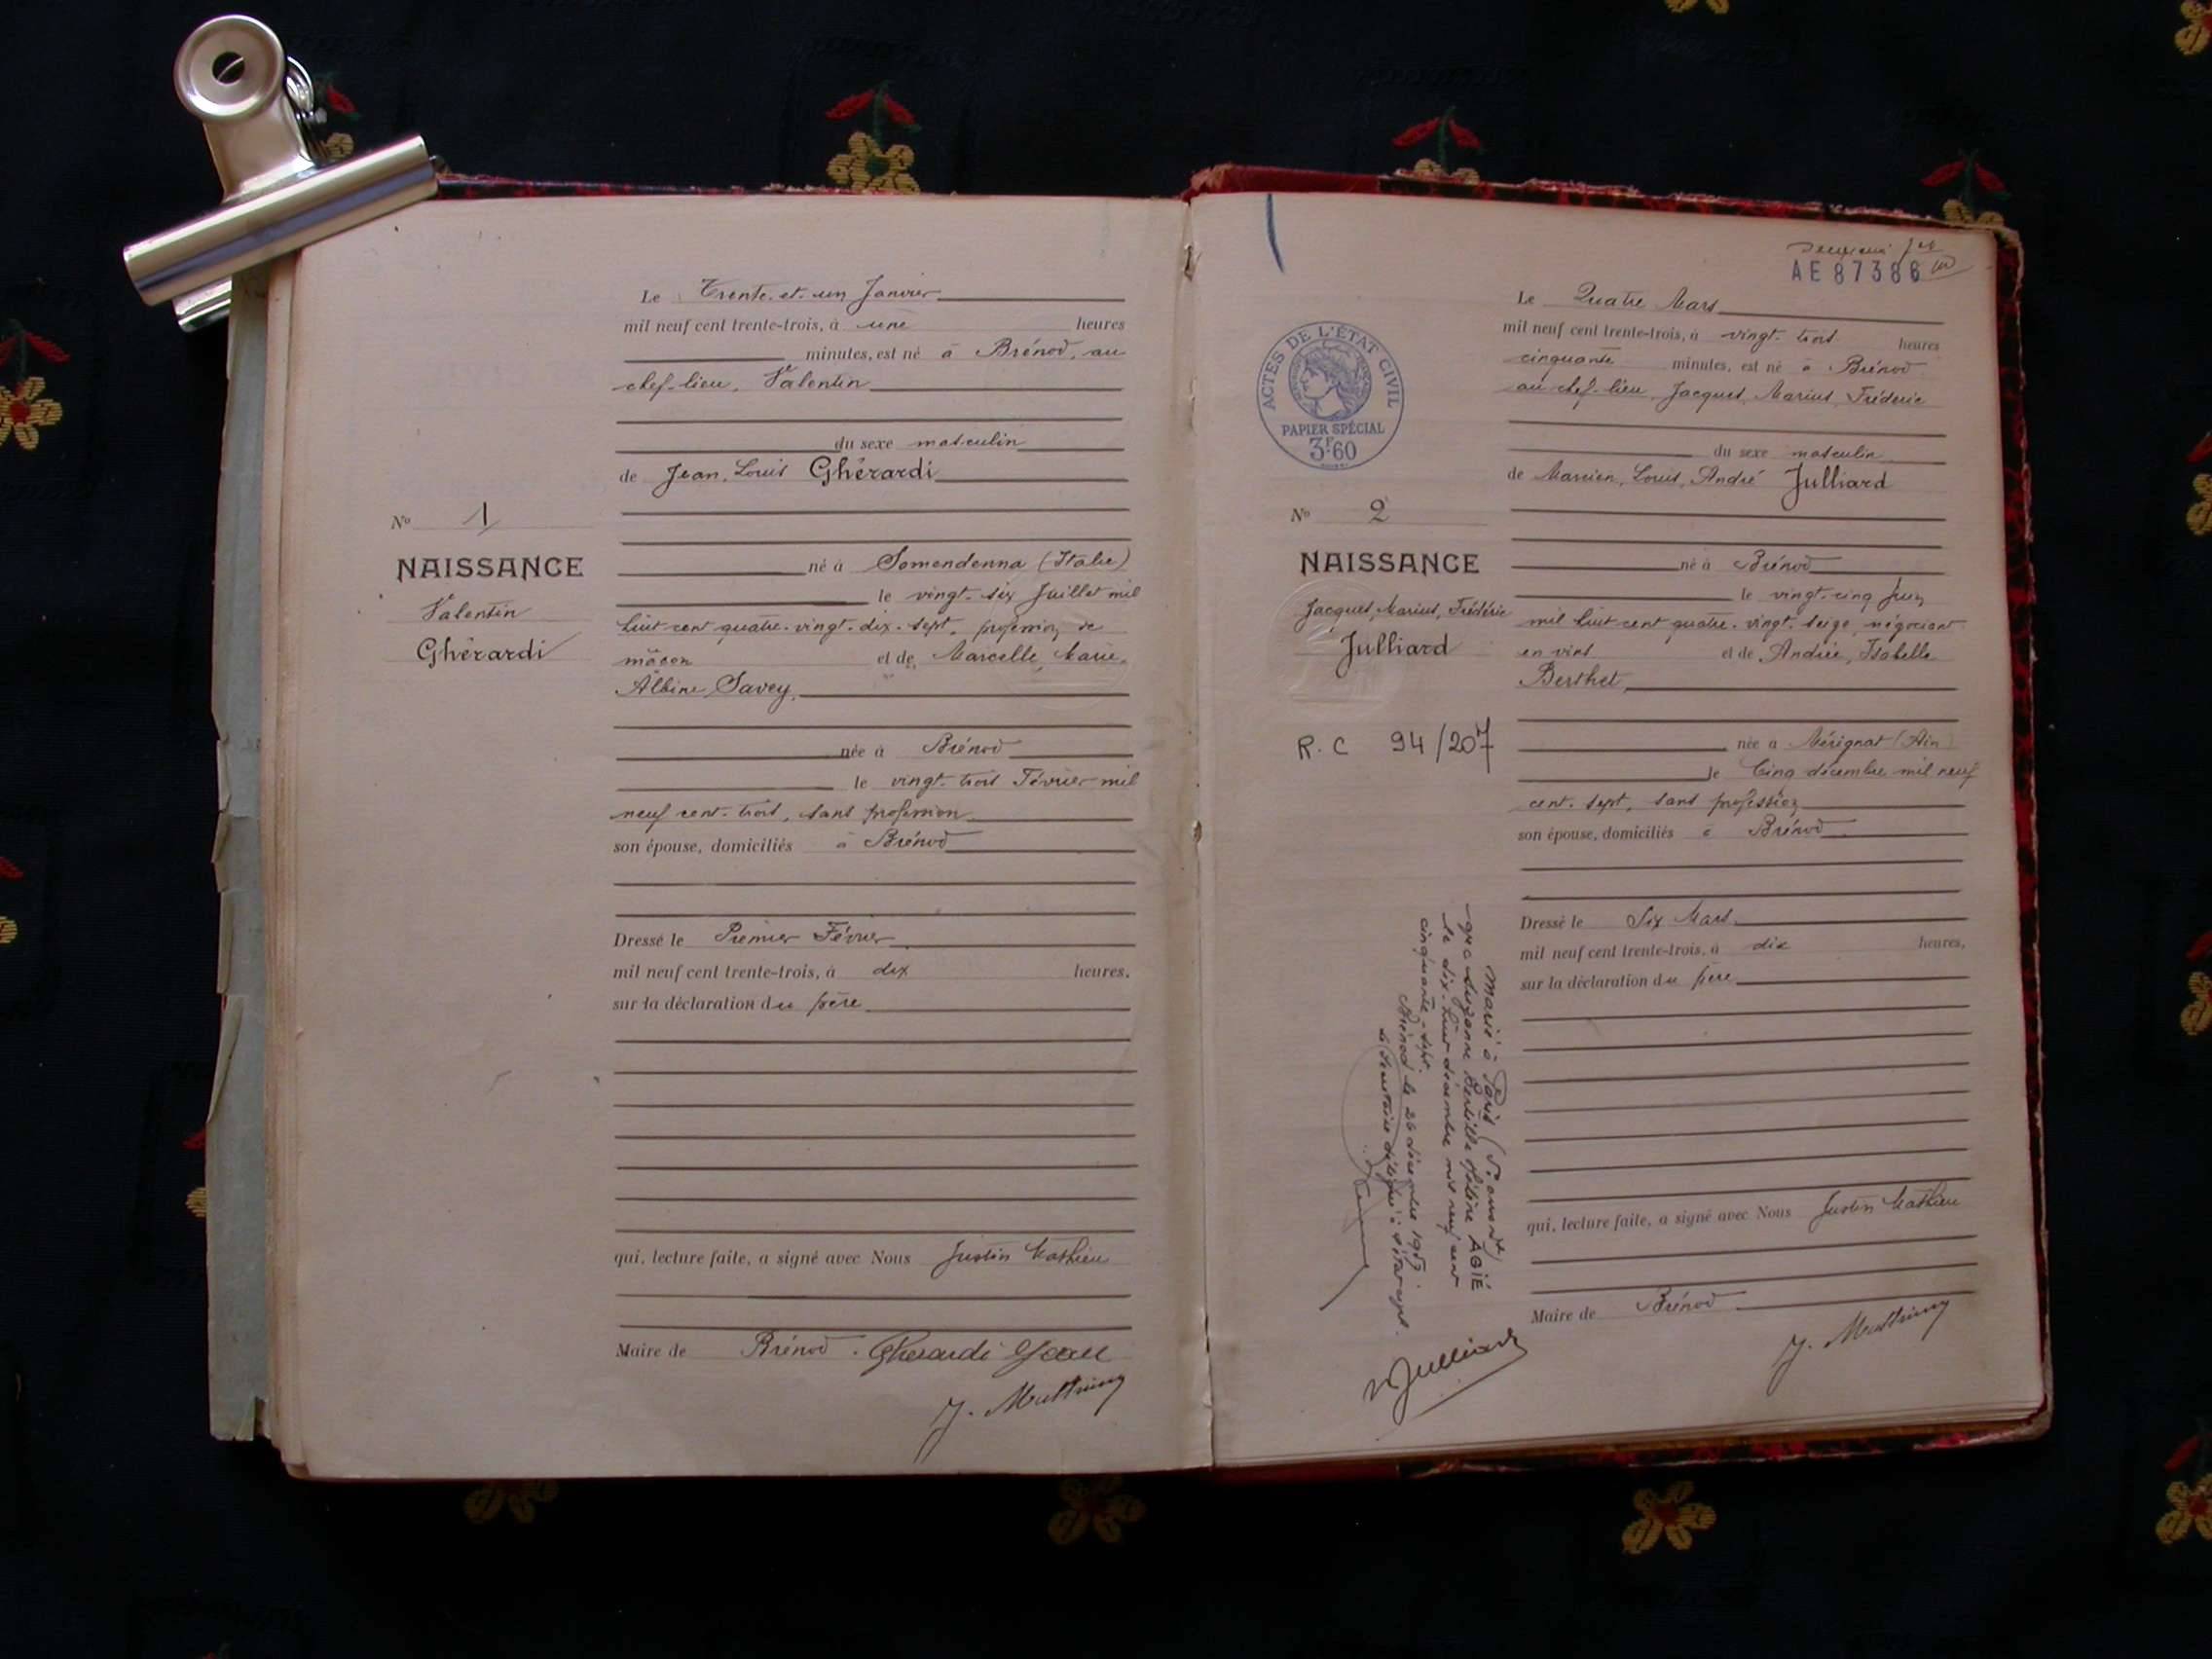 Le Trente-et-un Janvier
mil neuf cent trente-trois, à une heures
minutes, est né à Brénod, au
chef-lieu, Valentin
du sexe masculin
de Jean, Louis Ghérardi
No 1
NAISSANCE
Valentin
Ghérardi
né à Somendenna (Italie)
le vingt-six Juillet mil
huit cent quatre-vingt-dix-sept, profession de
maçon et de Marcelle, Marie,
Albine, Savey,
née à Brénod
le vingt-trois Février mil
neuf cent-trois, sans profession
son épouse, domiciliés à Brénod
Dressé le Premier Février
mil neuf cent trente-trois, à dix heures.
sur la déclaration du père
qui, lecture faite, a signé avec Nous Justin Mathieu
Maire de Brénod. Gherardi Jean
AE 87386
Le Quatre Mars
mil neuf cent trente-trois, à vingt-trois heures
cinquante minutes, est né à Brénod
au chef-lieu, Jacques, Marius, Fréderic
du sexe masculin
de Marcien, Louis, André Julliard
ACTES DE L'ÉTAT CIVIL
PAPIER SPÉCIAL
3F60
No 2
NAISSANCE
Jacques, Marius, Fréderic
Julliard
R.C 94/207
né à Brénod
le vingt-cinq Juin
mil huit cent quatre-vingt-seize, négociant
en vins et de Andrée, Isabelle
Berthet,
née à Mérignat (Ain)
le Cinq décembre mil neuf
cent-sept, sans profession
son épouse, domiciliés à Brénod
Dressé le Six Mars
mil neuf cent trente-trois, à dix heures.
sur la déclaration du père
qui, lecture faite, a signé avec Nous Justin Mathieu
Maire de Brénod
Marié à Paris
Suzanne Hélène AGIÉ
le dix-huit décembre mil neuf cent
cinquante-sept.
Brénod le 26 décembre 1957
Julliard